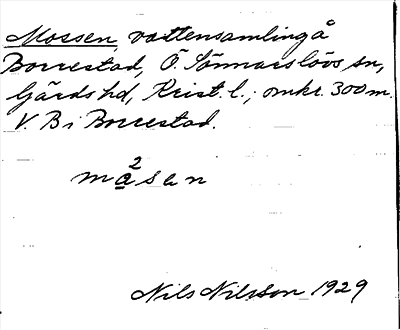 Mossen, vattensamling å
Borrestad, Ö. Sönnarslövs sn,
Gärds hd, Krist. l.; omkr. 300 m.
V. B i Borrestad.
2
måsen
Nils Nilsson 1929